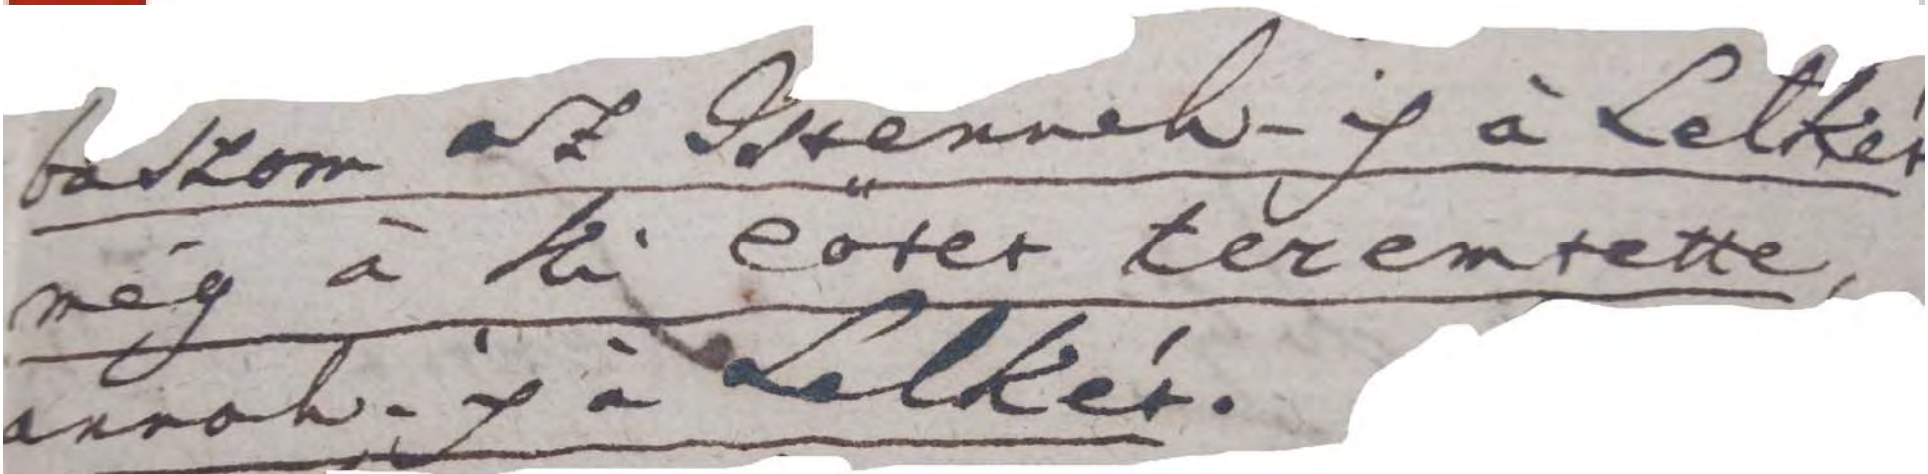 baszom az Istennek-is à Lelkét
még à ki eötet teremtette,
annak-is à Lelkét.